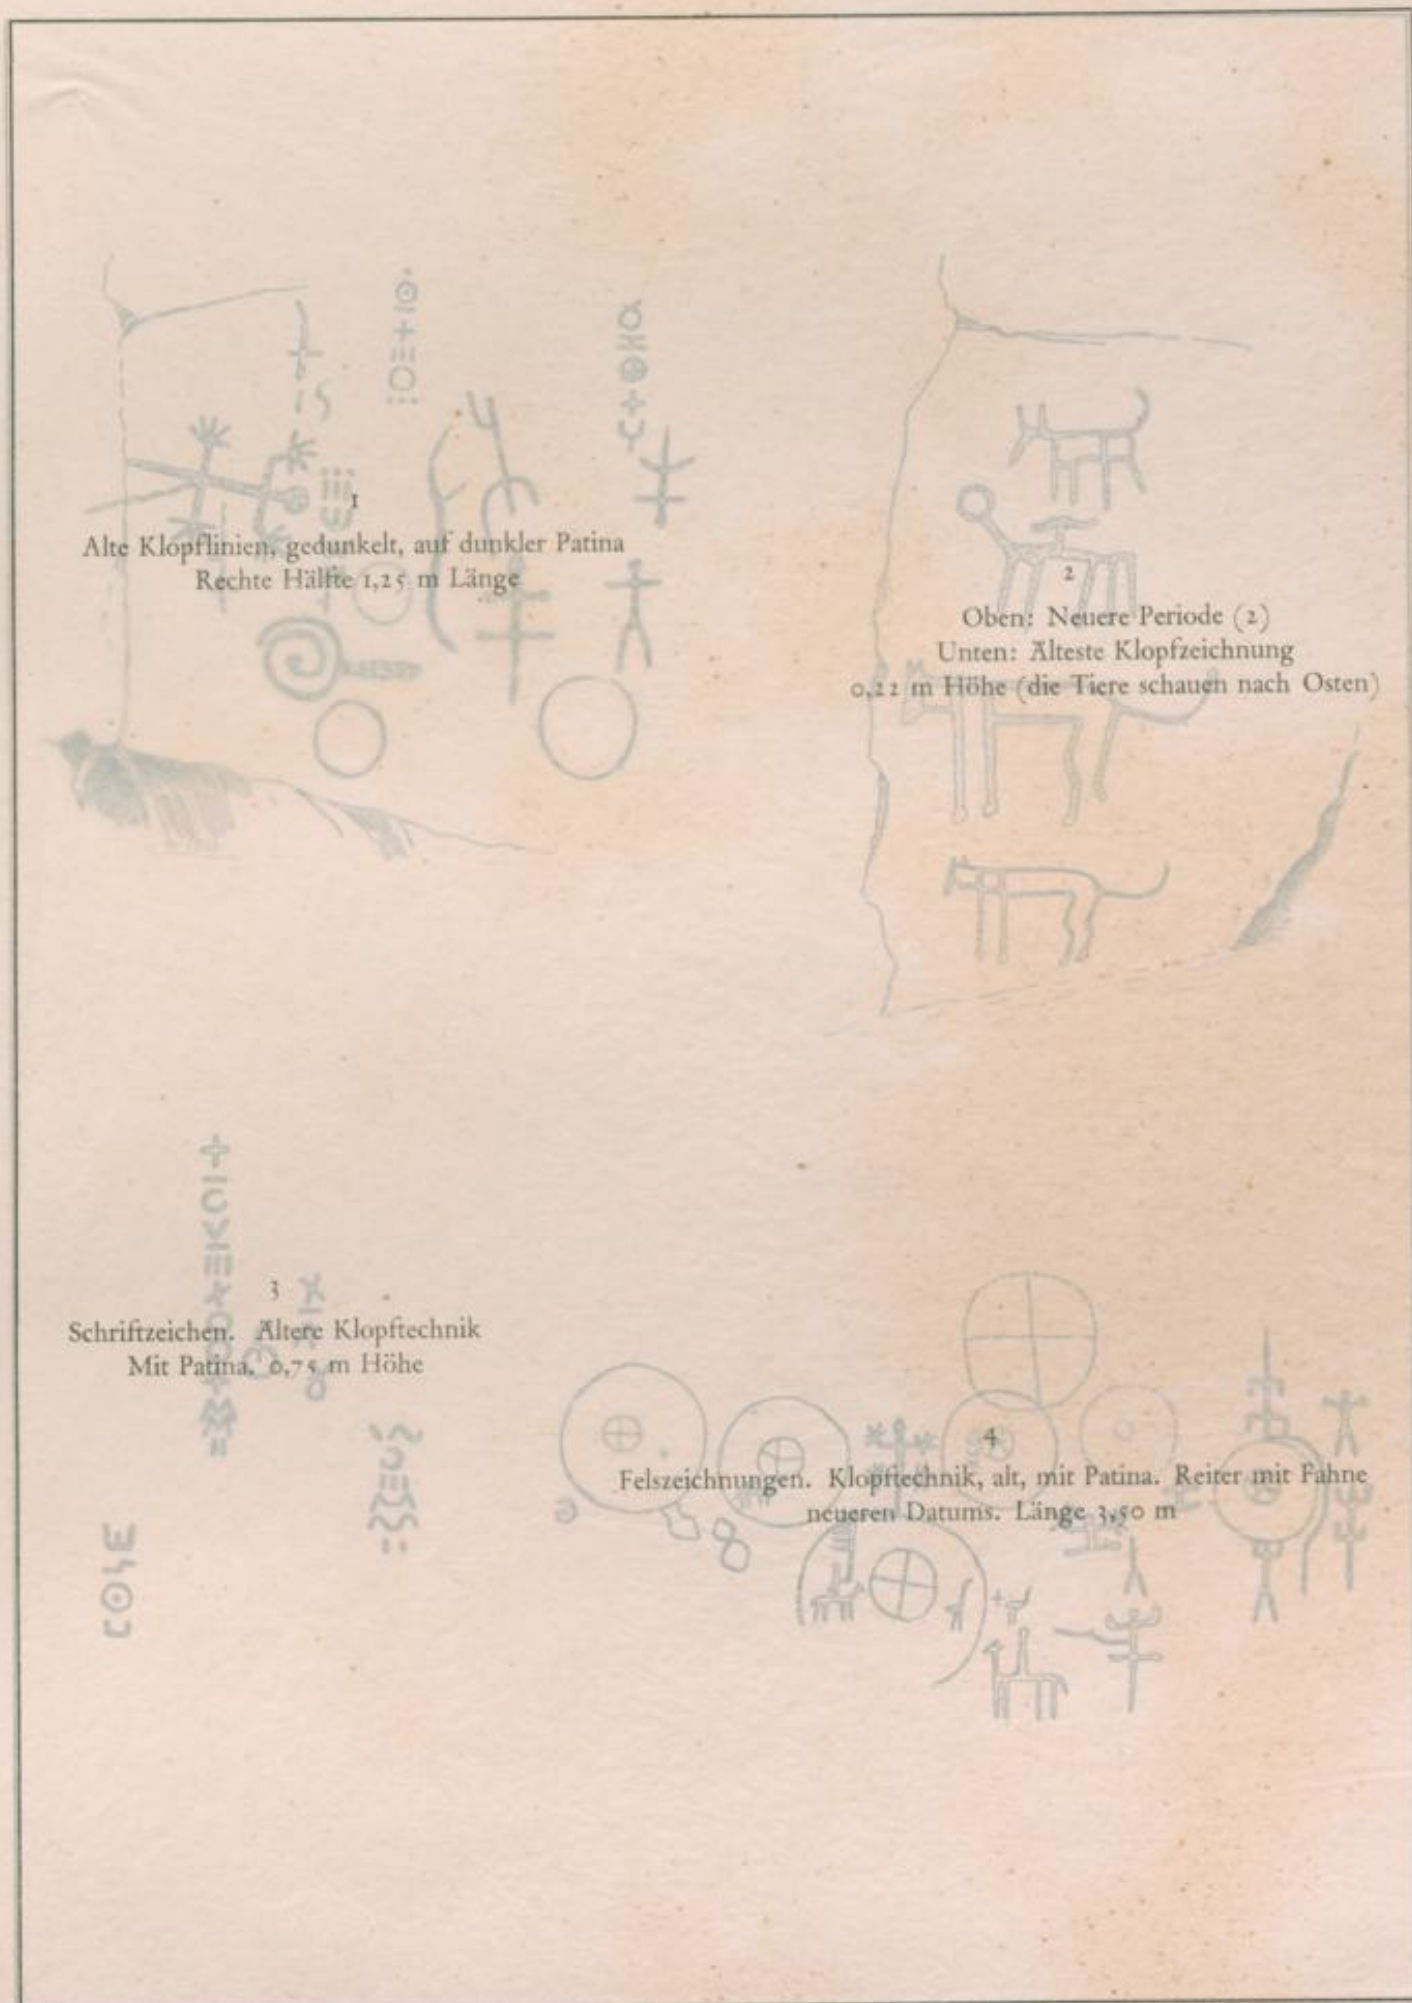 1
Alte Klopflinien, gedunkelt, auf dunkler Patina
Rechte Hälfte 1,25 m Länge
2
Oben: Neuere Periode (2)
Unten: Älteste Klopfzeichnung
0,22 m Höhe (die Tiere schauen nach Osten)
3
Schriftzeichen. Ältere Klopftechnik
Mit Patina. 0,75 m Höhe
4
Felszeichnungen. Klopftechnik, alt, mit Patina. Reiter mit Fahne
neueren Datums. Länge 3,50 m